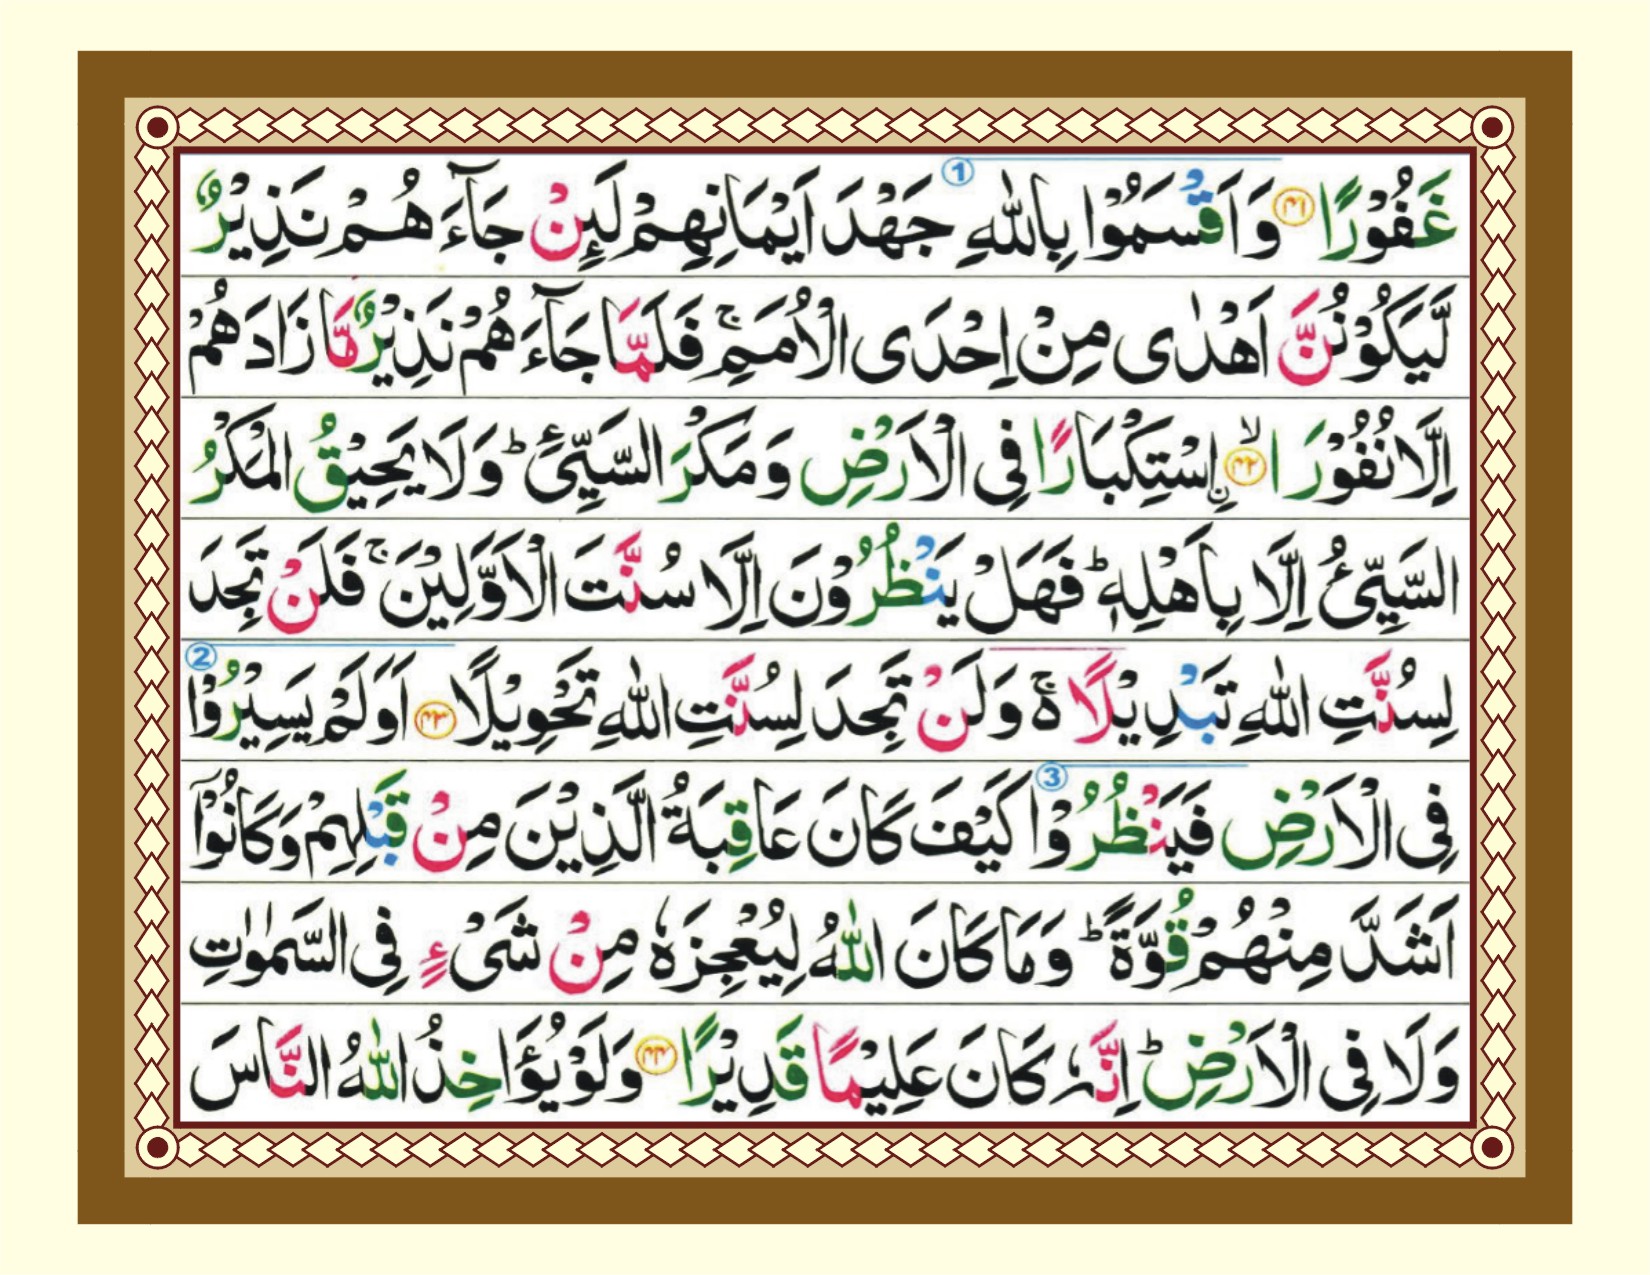 غَفُوْرًا ﴿۴۱﴾ وَاَقْسَمُوْا بِاللّٰهِ ① جَهْدَ اَيْمَانِهِمْ لَئِنْ جَآءَ هُمْ نَذِيْرٌ
لَّيَكُوْنُنَّ اَهْدٰى مِنْ اِحْدَى الْاُمَمِ ۚ فَلَمَّا جَآءَ هُمْ نَذِيْرٌ مَّا زَادَهُمْ
اِلَّا نُفُوْرَا ﴿۴۲﴾ۙ اِۨسْتِكْبَارًا فِى الْاَرْضِ وَ مَكْرَ السَّيِّئِ ؕ وَلَا يَحِيْقُ الْمَكْرُ
السَّيِّئُ اِلَّا بِاَهْلِهٖ ؕ فَهَلْ يَنْظُرُوْنَ اِلَّا سُنَّتَ الْاَوَّلِيْنَ ۚ فَلَنْ تَجِدَ
لِسُنَّتِ اللّٰهِ تَبْدِيْلًا ۬ۚ وَلَنْ تَجِدَ لِسُنَّتِ اللّٰهِ تَحْوِيْلًا ﴿۴۳﴾ اَوَلَمْ يَسِيْرُوْا ②
فِى الْاَرْضِ فَيَنْظُرُوْا ③ كَيْفَ كَانَ عَاقِبَةُ الَّذِيْنَ مِنْ قَبْلِهِمْ وَكَانُوْۤا
اَشَدَّ مِنْهُمْ قُوَّةً ؕ وَمَا كَانَ اللّٰهُ لِيُعْجِزَهٗ مِنْ شَىْءٍ فِى السَّمٰوٰتِ
وَلَا فِى الْاَرْضِ ؕ اِنَّهٗ كَانَ عَلِيْمًا قَدِيْرًا ﴿۴۴﴾ وَلَوْ يُؤَاخِذُ اللّٰهُ النَّاسَ